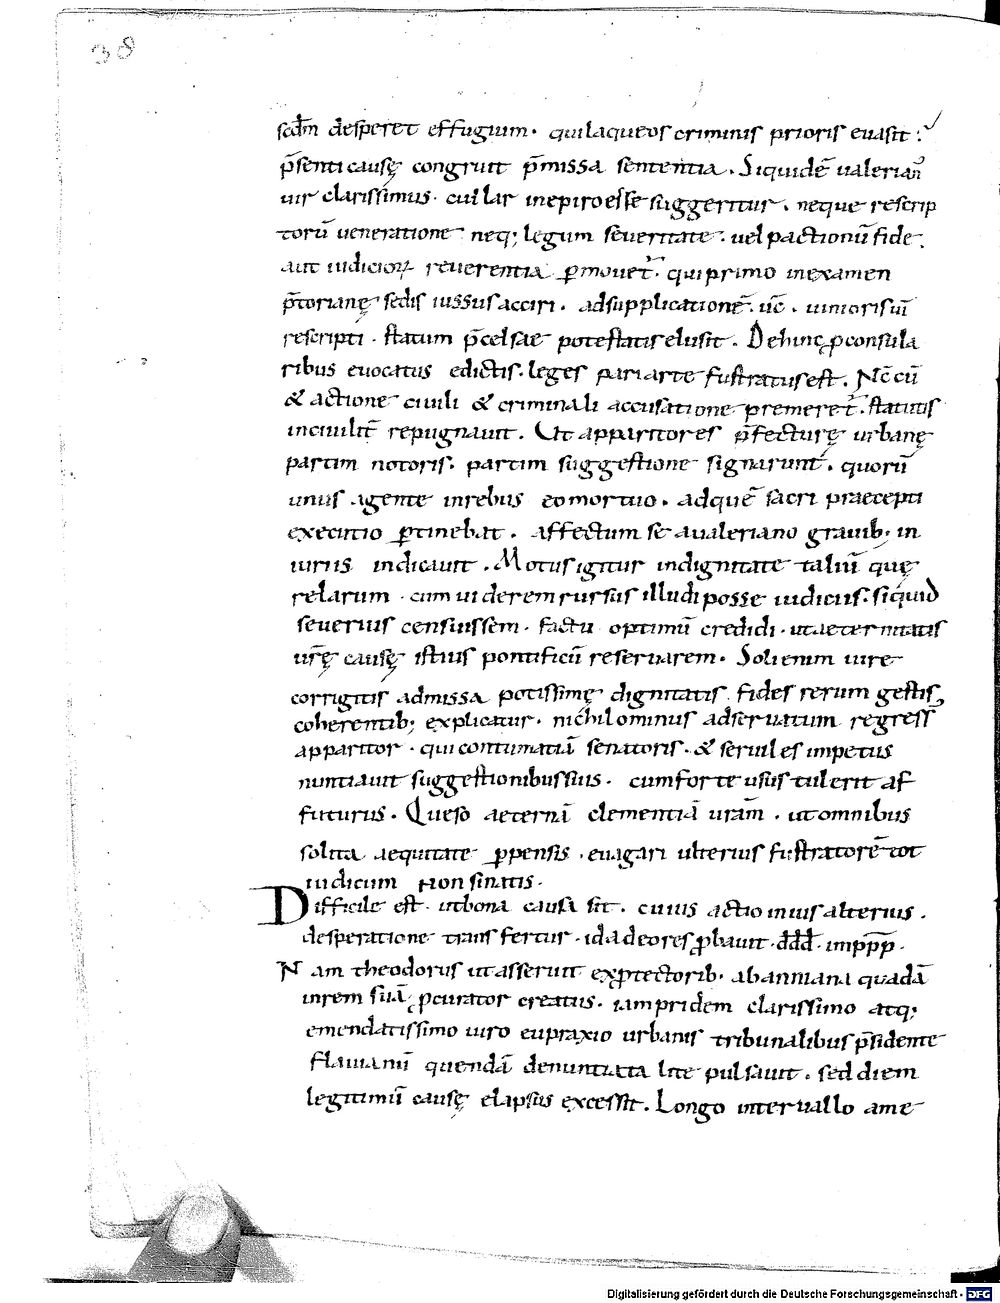 38
scd̄m desperet effugium. qui laqueos criminis prioris euasit.
p̄senti causę congruit p̄missa sententia. Siquidē ualerian᾽
uir clarissimus. cui lar inepiro esse suggeritur. neque rescrip
torū ueneratione neq; legum seueritate. uel pactionū fide.
aut iudicioꝝ reuerentia ꝑmouet᷑. qui primo in examen
p̄torianę sedis iussus acciri. ad supplicationē. uc̄. iunioris ui
rescripti. statum p̄celsae potestatis elusit. Dehinc ꝓconsula
ribus euocatus edictis. leges pari arte frustratus est. Nc̄ cū
& actione ciuili & criminali accusatione premeret᷑. statutis
inciuilit̄ repugnauit. Ut apparitores p̄fecturę urbanę
partim notoris. partim suggestione signarunt. quorū
unus agente in rebus eo mortuo. ad quē sacri praecepti
executio ꝑtinebat. affectum se a ualeriano grauib; in
iuriis indicauit. Motus igitur indignitate taliū quę
relarum. cum uiderem rursus illudi posse iudiciis. si quid
seuerius censuissem. factu optimū credidi. ut aeternitatis
ur̄ę causę istius pontificū reseruarem. Soli enim iure
corrigitis admissa potissimę dignitatis. fides rerum gestis
coherentib; explicatur. nichilominus adseruatum regress᾽
apparitor. qui contumatiā senatoris. & seruiles impetus
nuntiauit suggestionibus suis. cum forte usus tulerit af
futurus. Queso aeternā clementiā uram̄. ut omnibus
solita aequitate ꝑpensis. euagari ulterius frustratorē tot
iudicum non sinatis.
Difficile est. ut bona causa sit. cuius actio in uis alterius.
desperatione transfertur. id adeo res ꝓbauit. d̄d̄d̄. imppp̄.
Nam theodorus ut asseruit exꝓtectorib. ab anniana quadā
in rem suā ꝓcurator creatus. iampridem clarissimo atq;
emendatissimo uiro eupraxio urbanis tribunalibus p̄sidente
flauianū quendā denuntiata lite pulsauit. sed diem
legitimū causę elapsus excessit. Longo interuallo ame
Digitalisierung gefördert durch die Deutsche Forschungsgemeinschaft - DFG